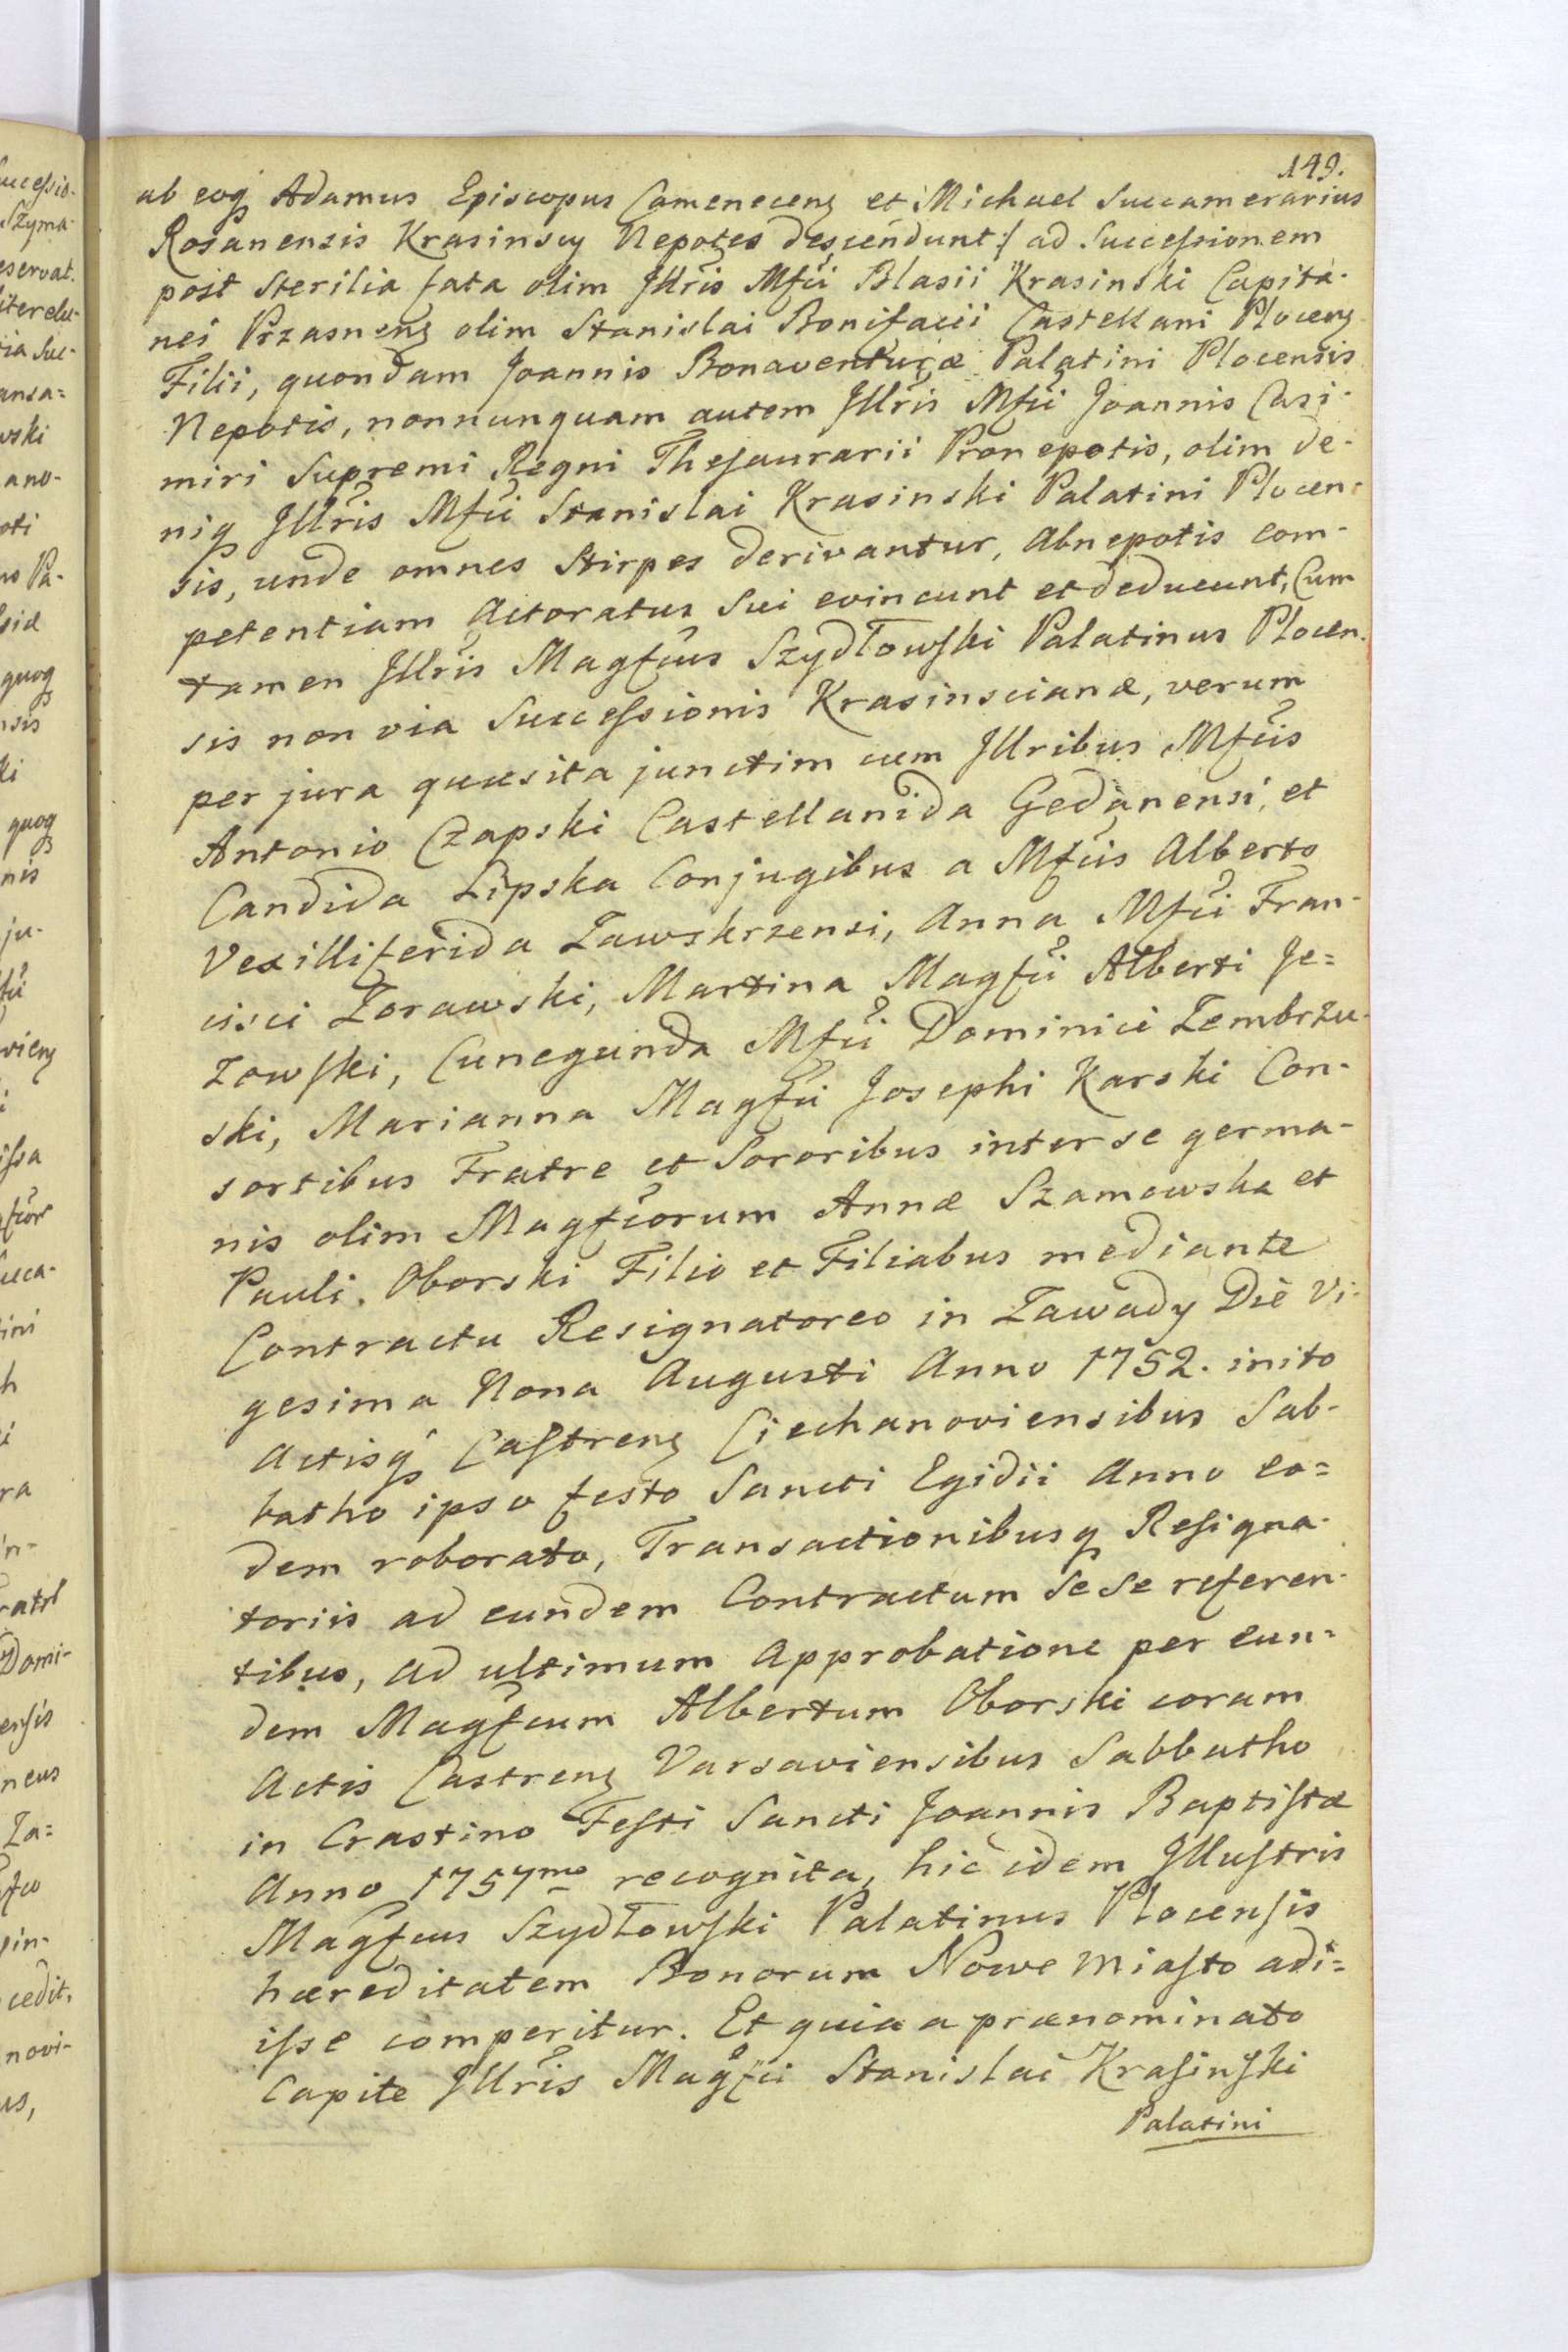 149.
ab eoq Adamus Episcopus Camenecens et Michael Succamerarius
Rosanensis Krasinscy Nepotes descendunt :/ ad Successionem
post sterilia fata olim Jllris Mfci Blasii Krasinski Capita-
nei Przasnens olim Stanislai Bonifacii Castellani Plocens
Filii, quondam Joannis Bonaventuræ Palatini Plocensis
Nepotis, nonnunquam autem Jllris Mfci Joannis Casi-
miri Supremi Regni Thesaurarii Pronepotis, olim de-
niq Jllris Mfci Stanislai Krasinski Palatini Plocen-
sis, unde omnes Stirpes derivantur, Abnepotis com-
petentiam Actoratus Sui evincunt et deducunt, Cum
tamen Jllris Magfcus Szydłowski Palatinus Plocen-
sis non via Successionis Krasinscianæ, verum
per jura quæsita junctim cum Jllribus Mfcis
Antonio Czapski Castellanida Gedanensi, et
Candida Lipska Conjugibus a Mfcis Alberto
Vexilliferida Zawskrzensi, Anna Mfci Fran-
cisci Zorawski, Martina Magfci Alberti Je=
zowski, Cunegunda Mfci Dominici Zembrzu-
ski, Marianna Magfci Josephi Karski Con-
sortibus Fratre et Sororibus inter se germa-
nis olim Magfcorum Annæ Szamowska et
Pauli Oborski Filio et Filiabus mediante
Contractu Resignatoreo in Zawady Die Vi-
gesima Nona Augusti Anno 1752. inito
Actisq Castrens Ciechanoviensibus Sab-
batho ipso festo Sancti Egidii Anno eo=
dem roborato, Transactionibusq Resigna-
toriis ad eundem Contractum Sese referen-
tibus, ad ultimum Approbatione per eun=
dem Magfcum Albertum Oborski coram
Actis Castrens Varsaviensibus Sabbatho
in Crastino Festi Sancti Joannis Baptistæ
Anno 1757mo recognita, hic idem Jllustris
Magfcus Szydłowski Palatinus Plocensis
hæreditatem Bonorum Nowe Miasto adi=
isse comperitur. Et quia a prænominato
Capite Jllris Magfci Stanislai Krasinski
Palatini